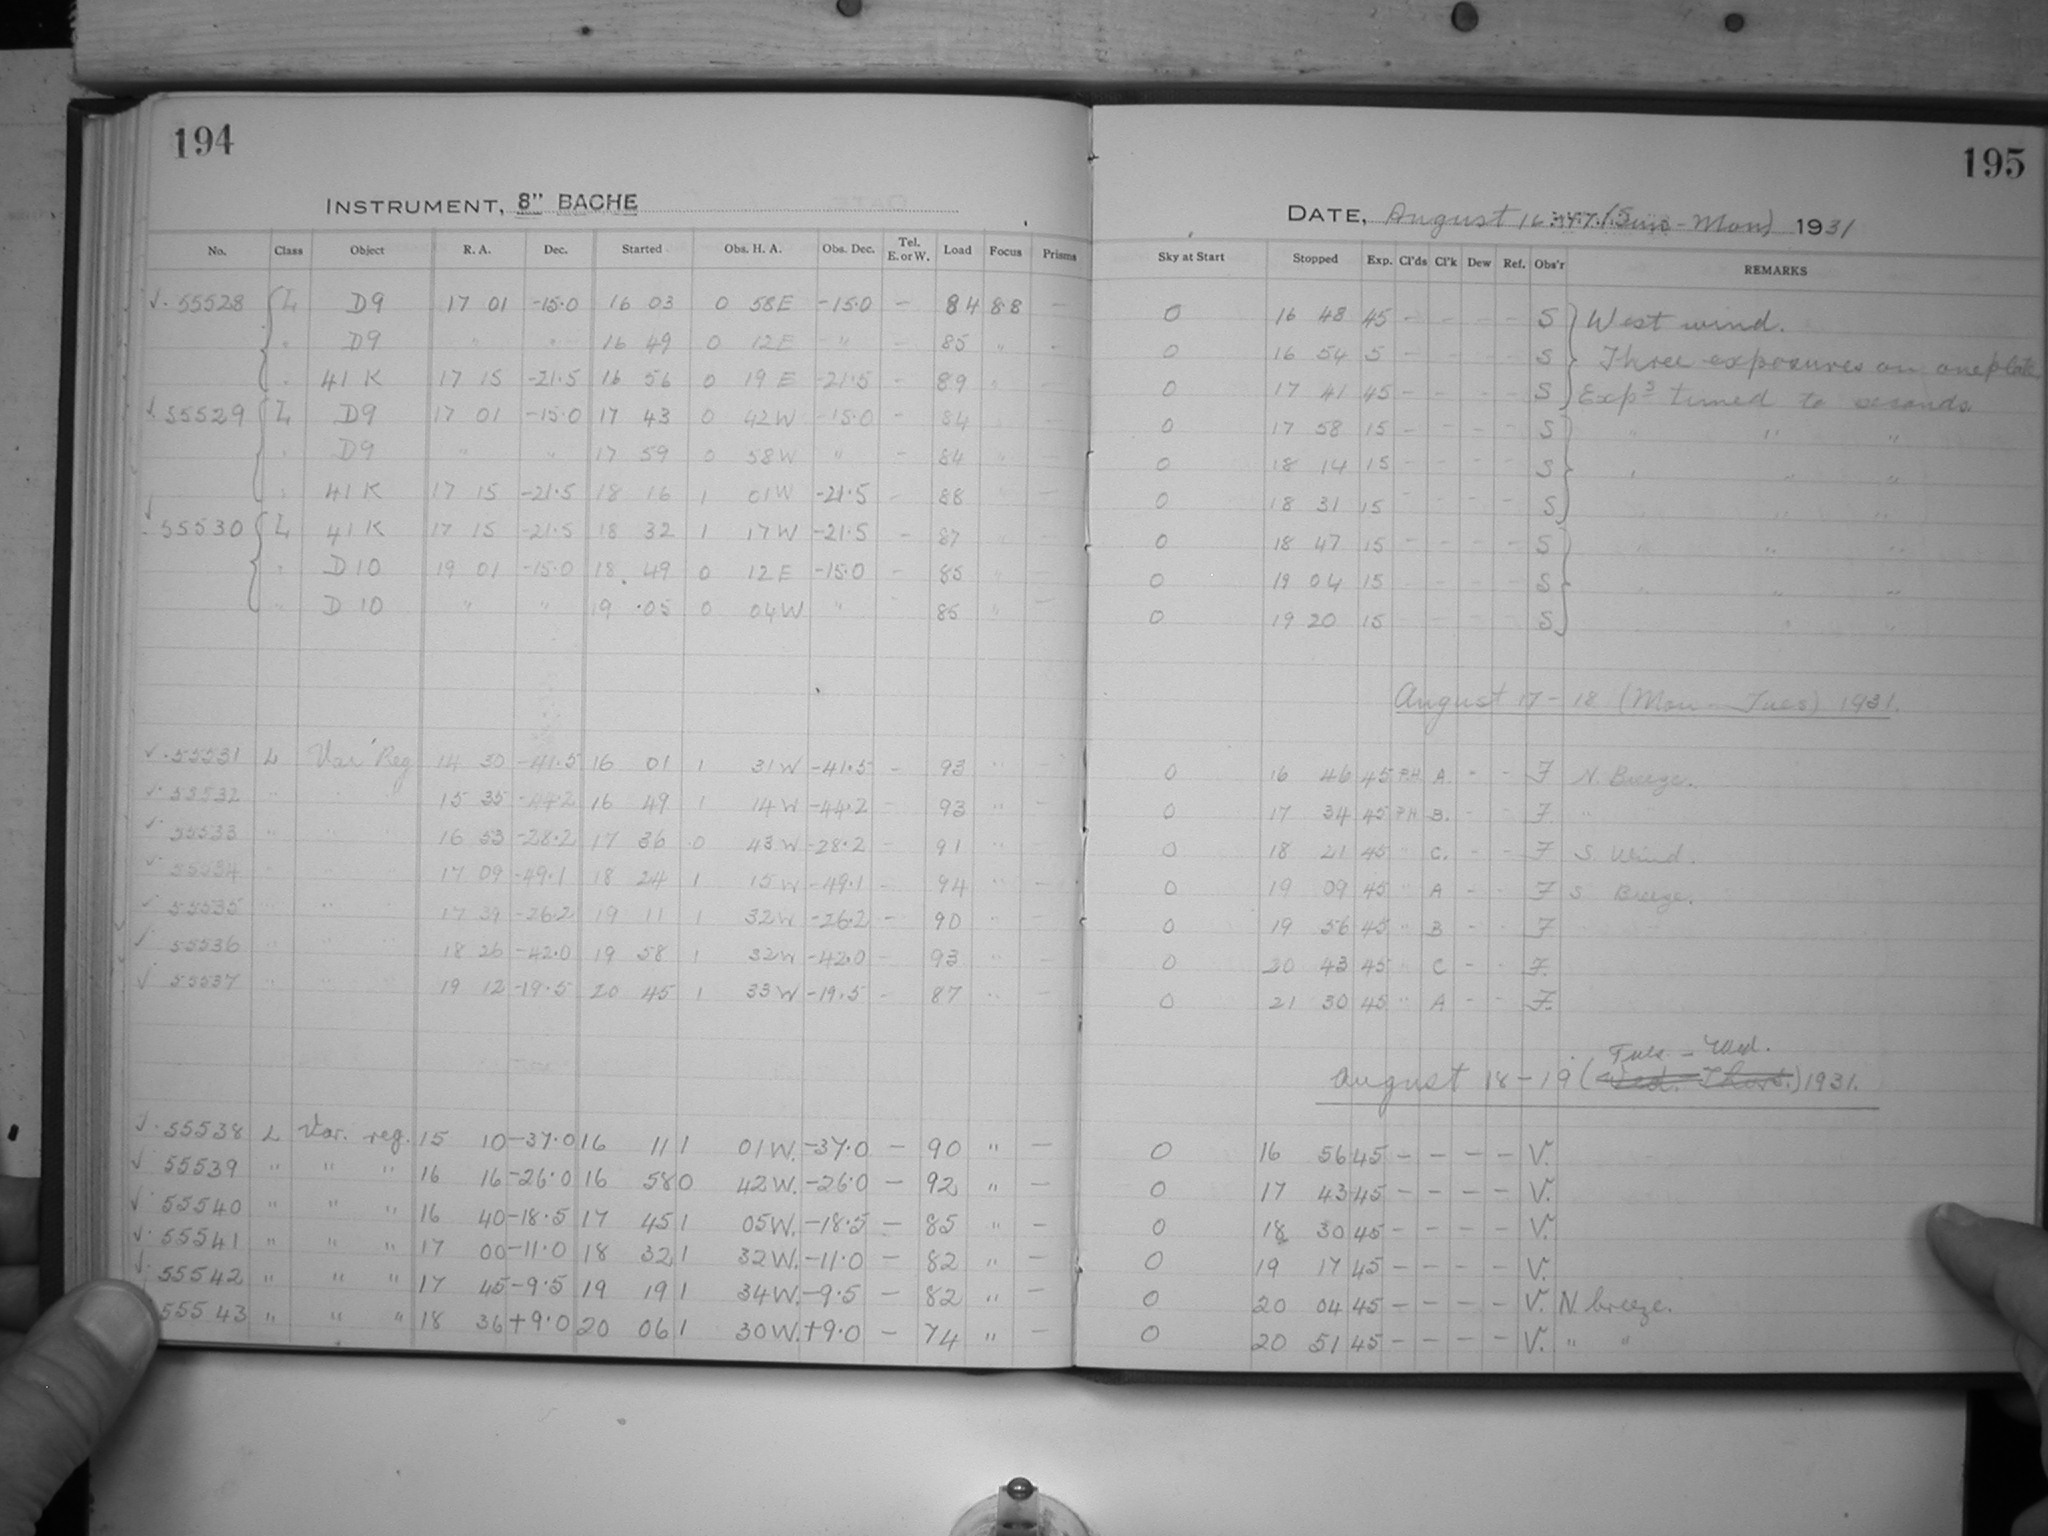 194
INSTRUMENT, 8" BACHE
No. Class Object R. A. Dec. Started Obs. H. A. Obs. Dec. Tel. E. or W. Load Focus Prisms
√ 55528 L D9 17 01 -15.0 16 03 0 58E -15.0 - 84 8.8 -
" D9 " " 16 49 0 12E " - 85 " -
" 41 K 17 15 -21.5 16 56 0 19 E -21.5 - 89 " -
√ 55529 L D9 17 01 -15.0 17 43 0 42W -15.0 - 84 " -
" D9 " " 17 59 0 58W " - 84 " -
" 41 K 17 15 -21.5 18 16 1 01W -21.5 - 88 " -
√ 55530 L 41 K 17 15 -21.5 18 32 1 17W -21.5 - 87 " -
" D 10 19 01 -15.0 18 49 0 12E -15.0 - 85 " -
" D 10 " " 19 05 0 04W " - 85 " -
√ 55531 L Var Reg 14 30 -41.5 16 01 1 31W -41.5 - 93 " -
√ 55532 " " " 15 35 -44.2 16 49 1 14W -44.2 - 93 " -
√ 55533 " " " 16 53 -28.2 17 36 0 43W -28.2 - 91 " -
√ 55534 " " " 17 09 -49.1 18 24 1 15W -49.1 - 94 " -
√ 55535 " " " 17 39 -26.2 19 11 1 32W -26.2 - 90 " -
√ 55536 " " " 18 26 -42.0 19 58 1 32W -42.0 - 93 " -
√ 55537 " " " 19 12 -19.5 20 45 1 33W -19.5 - 87 " -
√ 55538 L Var. reg. 15 10 -37.0 16 11 1 01W. -37.0 - 90 " -
√ 55539 " " " 16 16 -26.0 16 58 0 42W. -26.0 - 92 " -
√ 55540 " " " 16 40 -18.5 17 45 1 05W. -18.5 - 85 " -
√ 55541 " " " 17 00 -11.0 18 32 1 32W. -11.0 - 82 " -
√ 55542 " " " 17 45 -9.5 19 19 1 34W. -9.5 - 82 " -
55543 " " " 18 36 +9.0 20 06 1 30W. +9.0 - 74 " -
195
DATE, August 16-17 (Sun-Mon) 1931
Sky at Start Stopped Exp. Cl'ds Cl'k Dew Ref. Obs'r REMARKS
0 16 48 45 - - - - S West wind.
0 16 54 5 - - - - S Three exposures on one plate
0 17 41 45 - - - - S Exps timed to seconds
0 17 58 15 - - - - S " " "
0 18 14 15 - - - - S " " "
0 18 31 15 - - - - S " " "
0 18 47 15 - - - - S " " "
0 19 04 15 - - - - S " " "
0 19 20 15 - - - - S " "
August 17-18 (Mon-Tues) 1931.
0 16 46 45 P.H. A. - - F N. Breeze.
0 17 34 45 P.H B. - - F. "
0 18 21 45 " C. - - F S. Wind.
0 19 09 45 " A - - F S Breeze.
0 19 56 45 " B - - F
0 20 43 45 " C - - F.
0 21 30 45 " A - - F.
Tues - Wed.
August 18-19 (Wed. Thurs.) 1931.
0 16 56 45 - - - - V.
0 17 43 45 - - - - V.
0 18 30 45 - - - - V.
0 19 17 45 - - - - V.
0 20 04 45 - - - - V. N. breeze.
0 20 51 45 - - - - V. " "